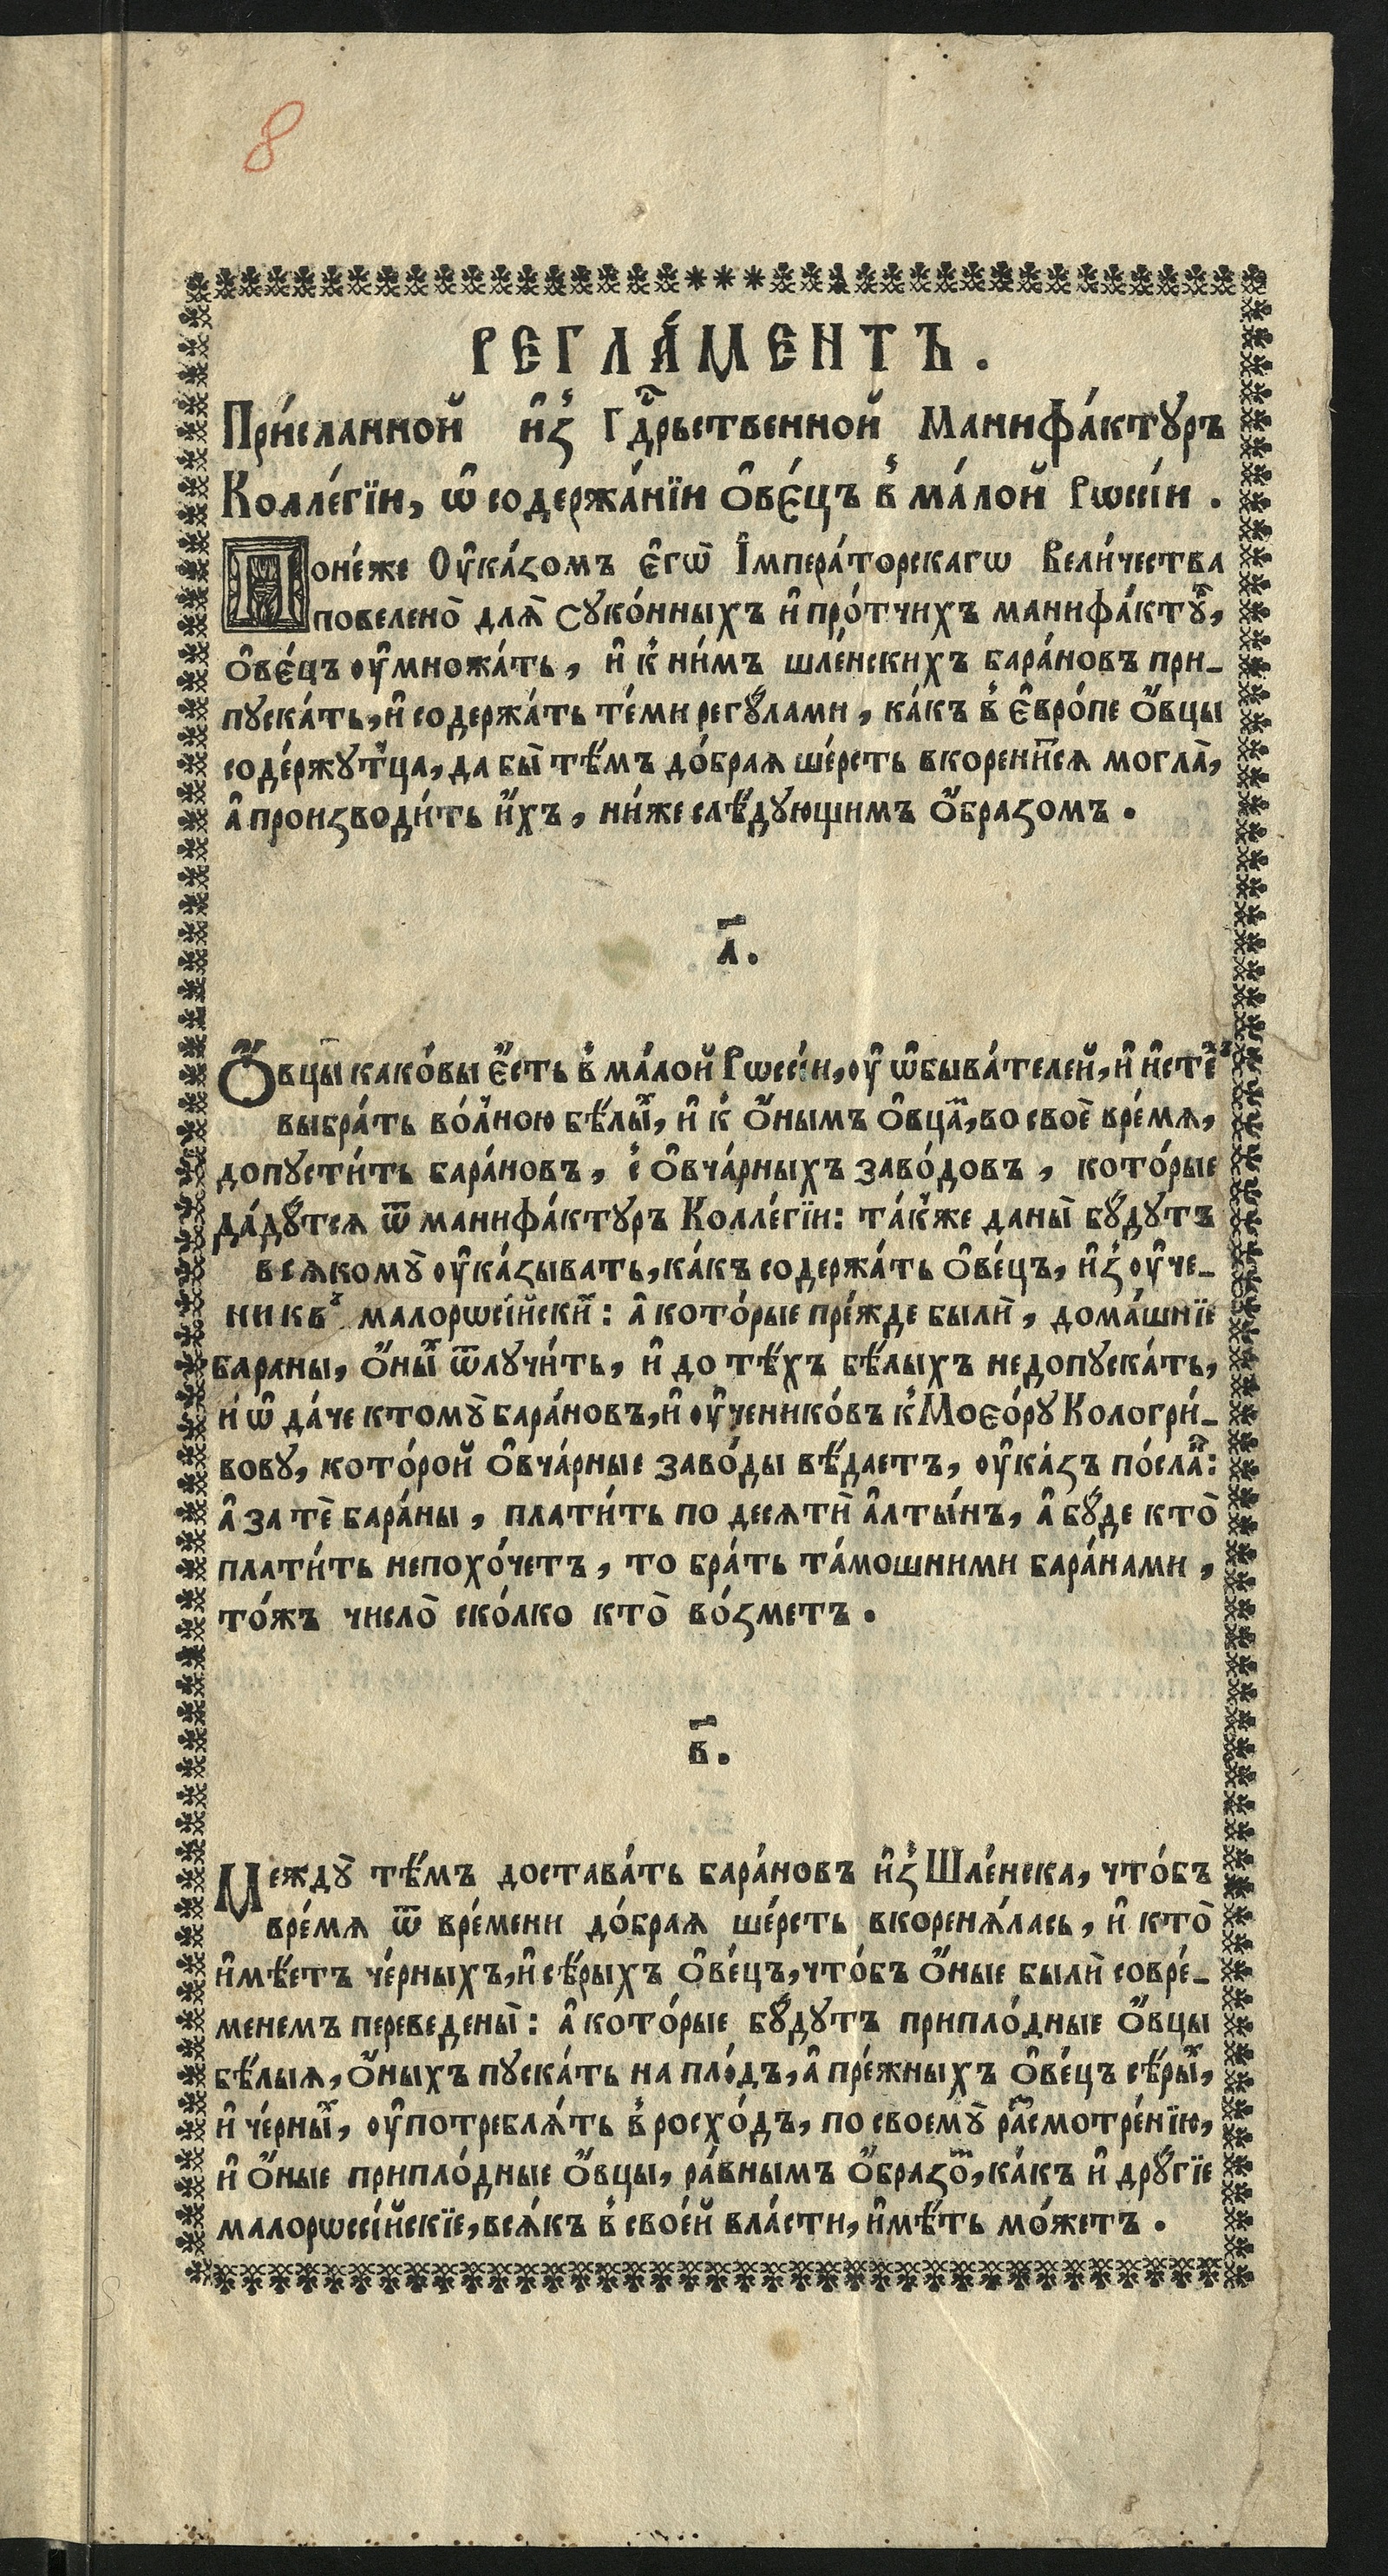 8
РЕГЛА́МЕНТЪ.
При́сланной и҆з̾ Гд҇рьственной Манифа́ктꙋръ
Колле́гїи, ѡ҆ содержа́нїи ѻ҆ве́цъ в̾ ма́лой Рѡссі́и.
Поне́же Оу҆ка́зомъ є҆гѡ̀ І҆мпера́торскагѡ Вели́чества
повелено̀ для̀ Сꙋко́нныхъ и҆ про́тчихъ манифа́ктꙋⷬ,
ѻ҆ве́цъ оу҆множа́ть, и҆ к̾ ни́мъ шле́нскихъ бара́новъ при-
пꙋска́ть, и҆ содержа́ть те́ми регꙋ́лами, ка́къ в̾ є҆вро́пе ѻ҆́вцы
соде́ржꙋт̾ца, да бы̀ тѣ́мъ до́брая ше́рсть вкорениⷮся могла̀,
а҆ производи́ть и҆́хъ, ни́же слѣ́дꙋющимъ ѻ҆́бразомъ.
а҃.
Ѻ҆́вцы како́вы є҆́сть в̾ ма́лой Рѡссі́и, оу҆ ѡ҆быва́телей, и҆ и҆стеⷯ
выбра́ть во́лною бѣ́лыⷯ, и҆ к̾ ѻ҆́нымъ ѻ҆вцаⷨ, во своѐ вре́мя,
допꙋсти́ть бара́новъ, с̾ ѻ҆вча́рныхъ заво́довъ, кото́рые
да́дꙋтся ѿ манифа́ктꙋръ Колле́гїи: та́к̾же даны̀ бꙋ́дꙋтъ
всякомꙋ̀ оу҆ка́зывать, ка́къ содержа́ть ѻ҆ве́цъ, и҆з̾ оу҆че-
никѡⷡ малорѡсі́йскиⷯ: а҆ кото́рые пре́жде былѝ, дома́шнїе
бараны, ѻ҆́ныⷯ ѿлꙋчи́ть, и҆ до тѣ́хъ бѣ́лыхъ недопꙋска́ть,
и҆ ѡ҆ да́че ктомꙋ̀ бара́новъ, и҆ оу҆ченико́въ к̾ Моєо́рꙋ Кологри́-
вовꙋ, кото́рой ѻ҆вча́рные заво́ды вѣ́даетъ, оу҆ка́зъ по́слаⷩ:
а҆ за тѐ бара́ны, плати́ть по десятѝ а҆лты́нъ, а҆ бꙋ́де кто̀
плати́ть непохо́четъ, то бра́ть та́мошними бара́нами,
то́жъ число̀ ско́лко кто̀ во́зметъ.
в҃.
Междꙋ̀ тѣ́мъ достава́ть бара́новъ и҆з̾ Шле́нска, что́бъ
вре́мя ѿ вре́мени до́брая ше́рсть вкореня́лась, и҆ кто̀
и҆мѣ́етъ че́рныхъ, и҆ сѣ́рыхъ ѻ҆ве́цъ, что́бъ ѻ҆́ные былѝ совре́-
менемъ переведены̀: а҆ кото́рые бꙋ́дꙋтъ припло́дные ѻ҆́вцы
бѣ́лыя, ѻ҆́ныхъ пꙋска́ть на пло́дъ, а҆ пре́жныхъ ѻ҆ве́цъ сѣ́рыⷯ,
и҆ че́рныⷯ, оу҆потребля́ть в̾ росхо́дъ, по своемꙋ̀ раⷥсмотре́нїю,
и҆ ѻ҆́ные припло́дные ѻ҆́вцы, ра́внымъ ѻ҆́бразоⷨ, ка́къ и҆ дрꙋ́гїе
малорѡссі́йскїе, вся́къ в̾ свое́й вла́сти, и҆мѣ́ть мо́жетъ.